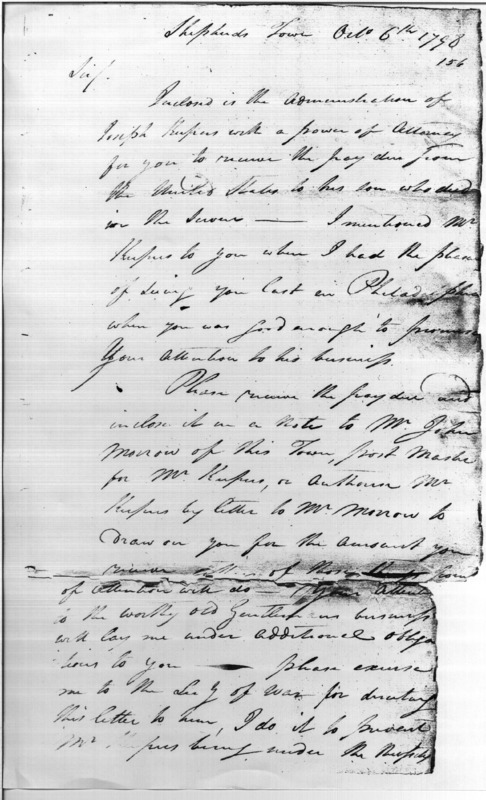 Shepherds Town Octo 6th 1798
156
Sir,
Inclosed is the administration of
Joseph Keepers with a power of Attorney
for you to receive the pay due from
the United States to his son who died
in the Service — I mentioned Mr
Keepers to you when I had the pleas
of Seeing you last in Philadelphia
when you was good enough to promise
your attention to his business.
Please receive the pay due and
inclose it in a Note to Mr. John
Morrow of this Town, post Master
for Mr Keepers, or authorise Mr
Keepers by letter to Mr Morrow to
Draw on you for the amount you
receive either of these
of attention will do — your attent
to the worthy old Gentlemans business
will lay me under additional obliga
tions to you — please excuse
me to the Secy of War for directing
this letter to him, I do it to prevent
Mr Keepers being under the